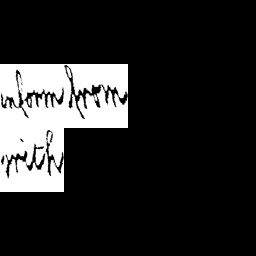 inform from
with